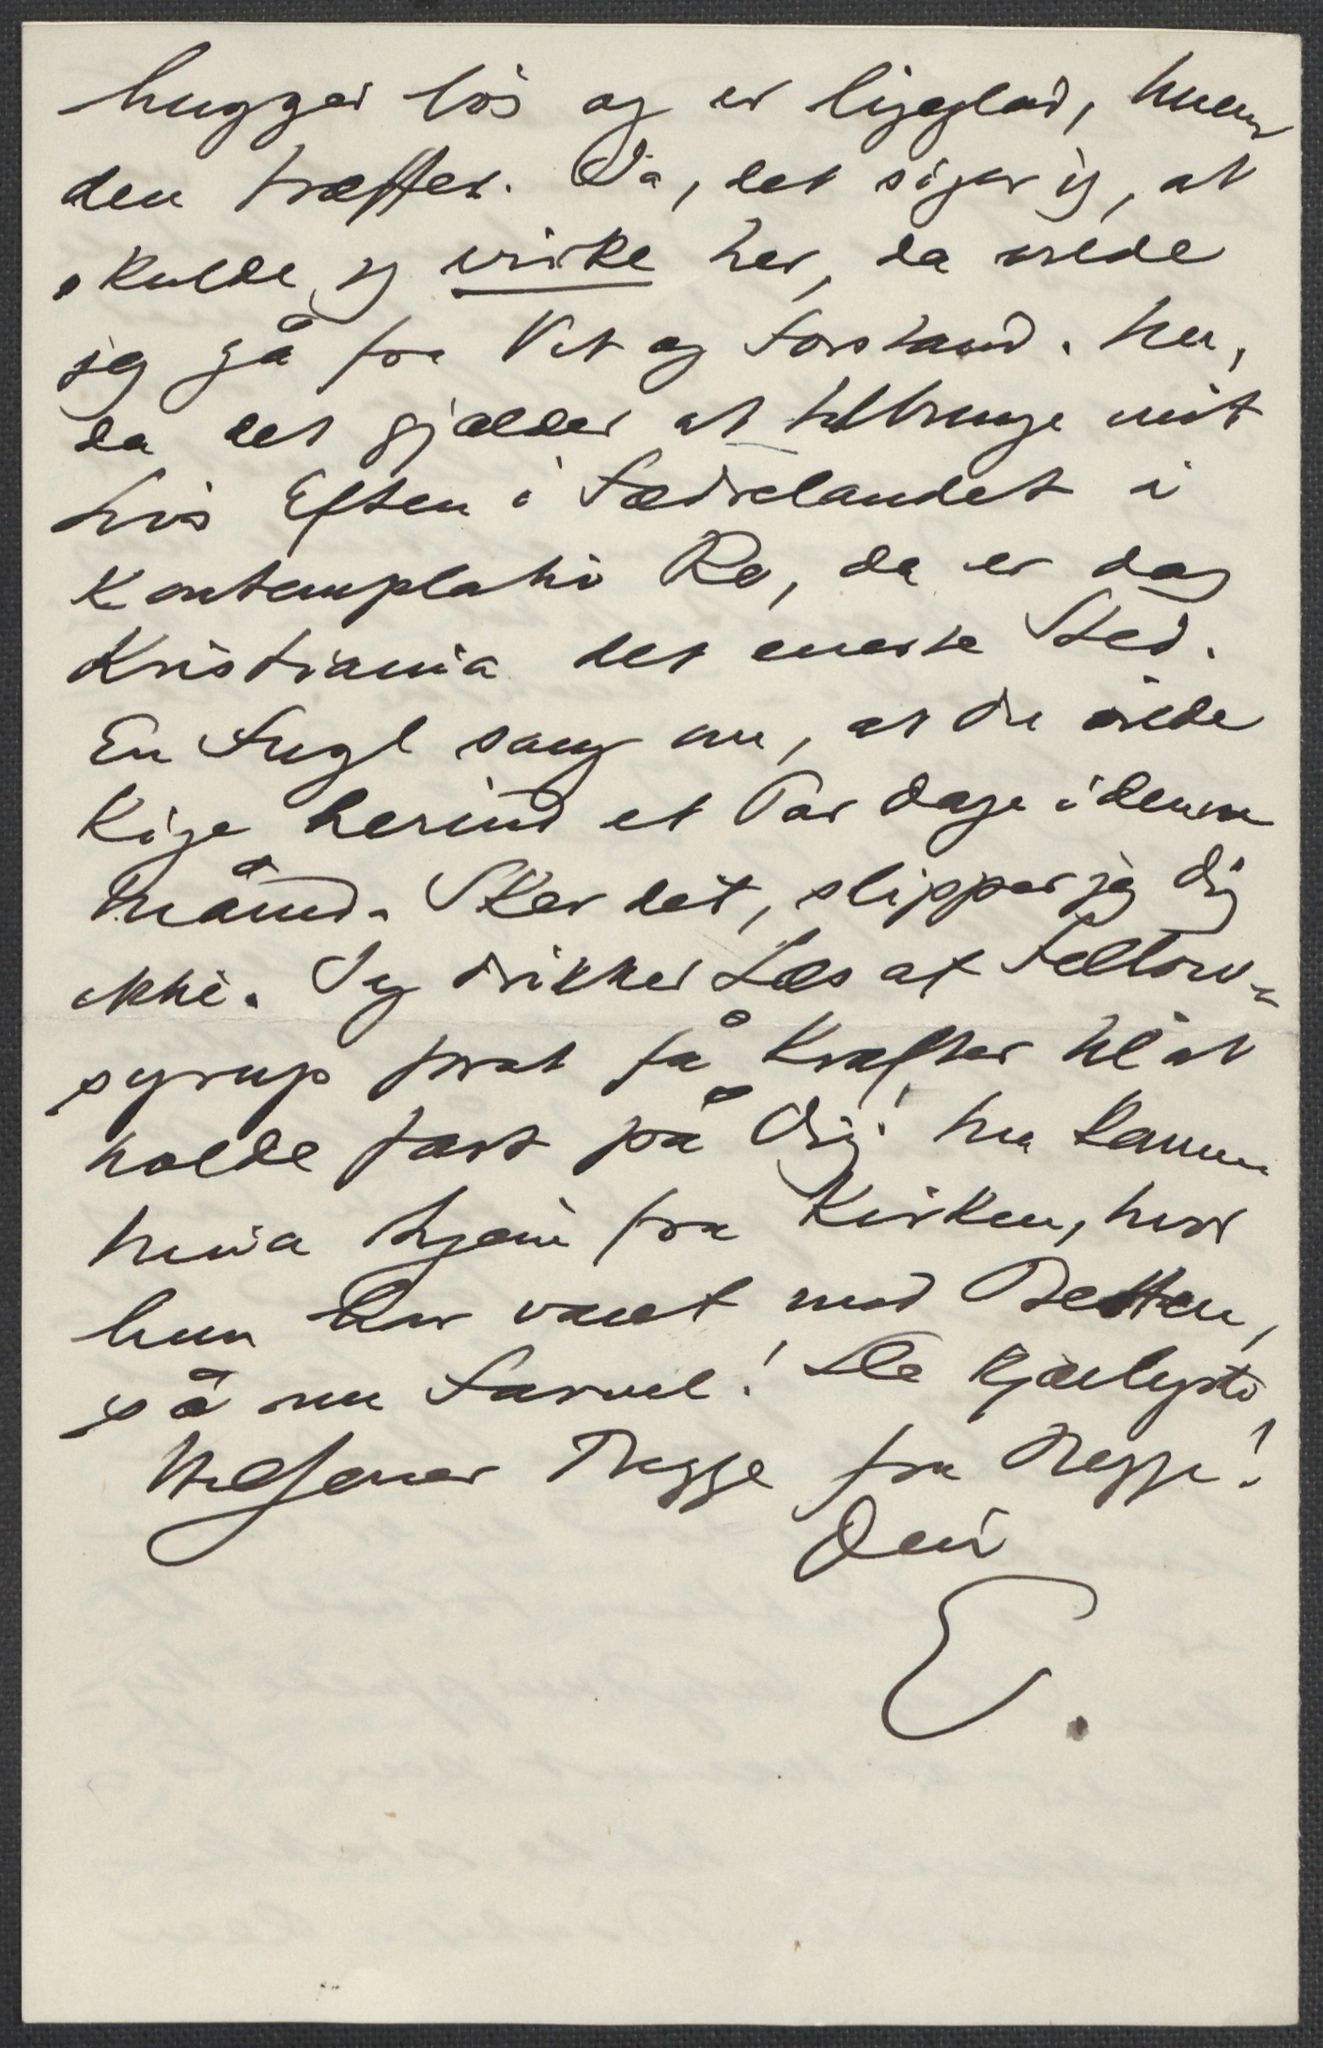 hugger løs og er ligeglad, hvem
den træffer. Ja, det siger jeg, at
skulde jeg virke her, da vilde
jeg gå fra Vet og Forstand. Men,
da det gjælder at tilbringe mit
Livs Aften i Fædrelandet i
Kontemplativ Ro, da er dog
Kristiania det eneste Sted.
En Fugl sang om, at Du vilde
Kige herind et Par Dage i denne
Måned. Sker det, slipper jeg Dig
ikke. Jeg drikker Læs af Fellow-
syrup forat få Kræfter til at
holde fast på Dig! Nu kommer
Nina hjem fra Kirken, hvor
hun har været med Betten,
så nu Farvel! De kjærligste
Hilsener Begge fra Begge!
Din
E.